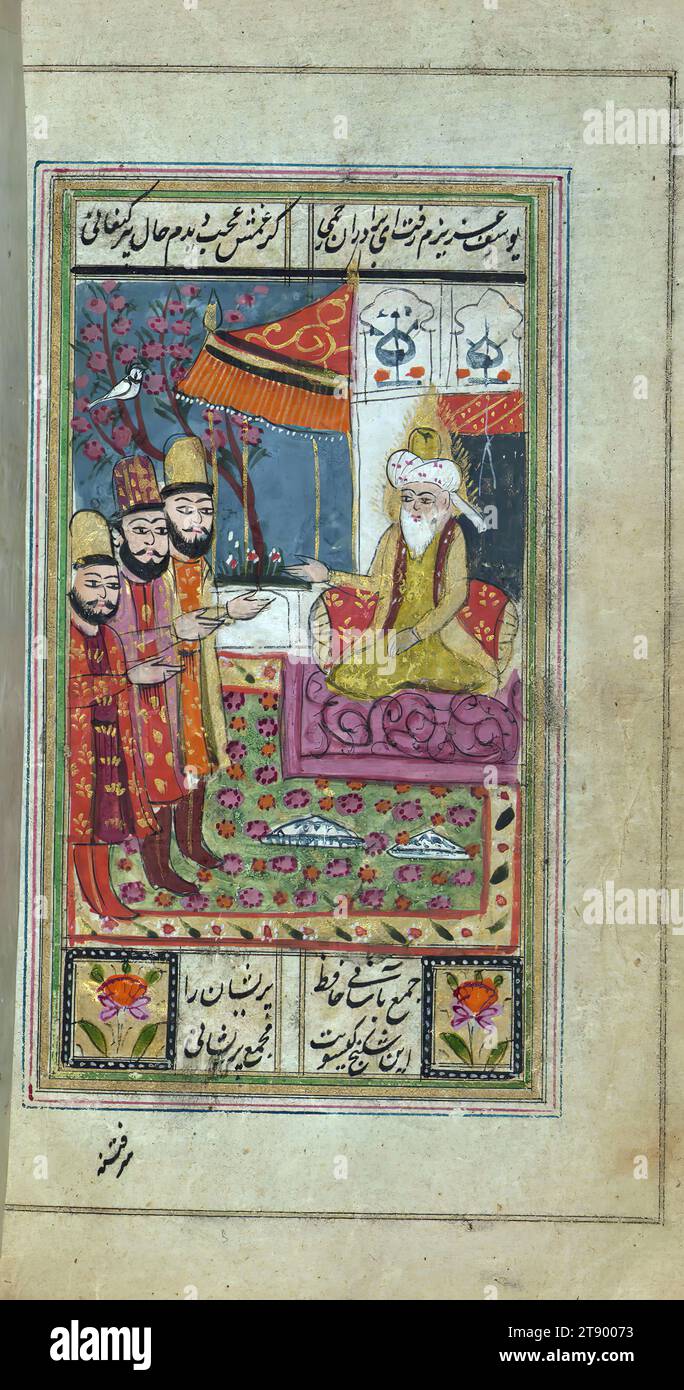 یوسف عزیزم رفت ای برادران رحمی
کز غمش عجب دیدم حال پیر کنعانی
جمع بآسانی حافظ پریشان را
این شکنج گیسویت مجمع پریشانی
سر فتنه
alamy
Image ID: 2T90073
www.alamy.com